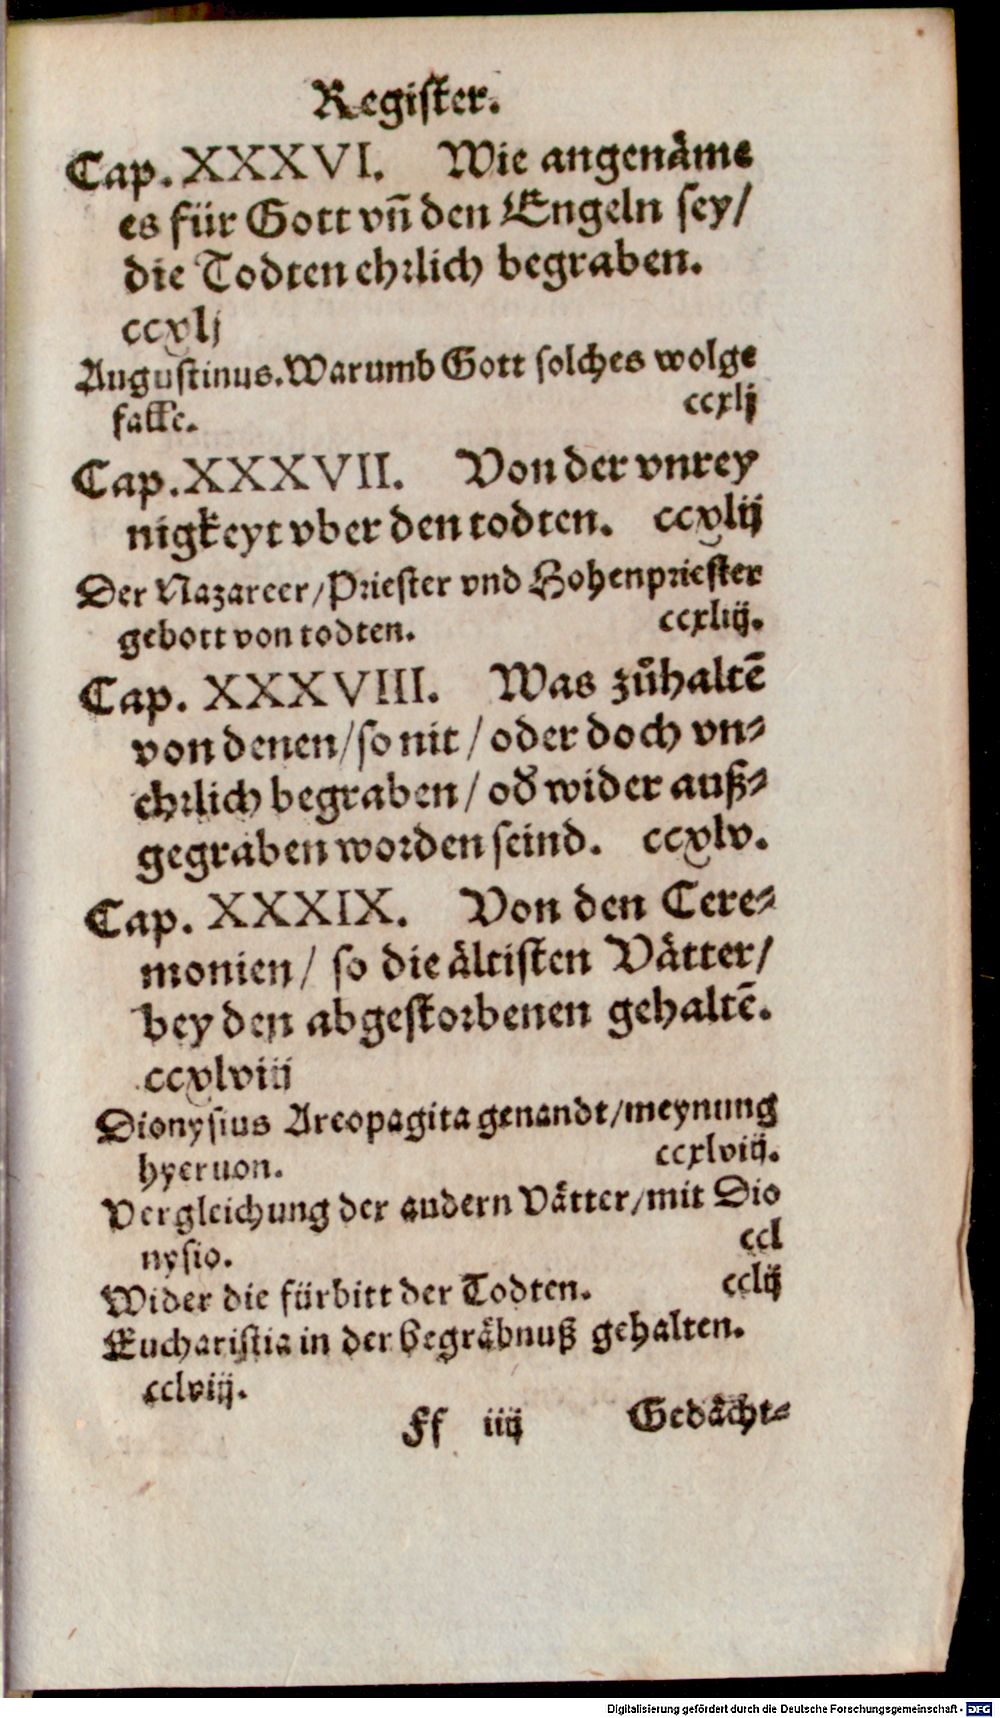 Register.
Cap. XXXVI. Wie angenäme
es für Gott vñ den Engeln sey/
die Todten ehrlich begraben.
ccxlj
Augustinus. Warumb Gott solches wolge
falle.
ccxlij
Cap. XXXVII. Von der vnrey
nigkeyt vber den todten. ccxlij
Der Nazareer/Priester vnd Hohenpriester
gebott von todten.
ccxliij.
Cap. XXXVIII. Was zůhaltẽ
von denen/so nit/oder doch vn⸗
ehrlich begraben/od̕ wider auß⸗
gegraben worden seind. ccxlv.
Cap. XXXIX. Von den Cere⸗
monien/ so die ältisten Vätter/
bey den abgestorbenen gehaltẽ.
ccxlviij
Dionysius Areopagita genandt/meynung
hyeruon.
ccxlviij.
Vergleichung der andern Vätter/mit Dio
nysio.
ccl
Wider die fürbitt der Todten. cclij
Eucharistia in der begräbnuß gehalten.
cclviij.
Ff iiij Gedächt⸗
Digitalisierung gefördert durch die Deutsche Forschungsgemeinschaft - DFG